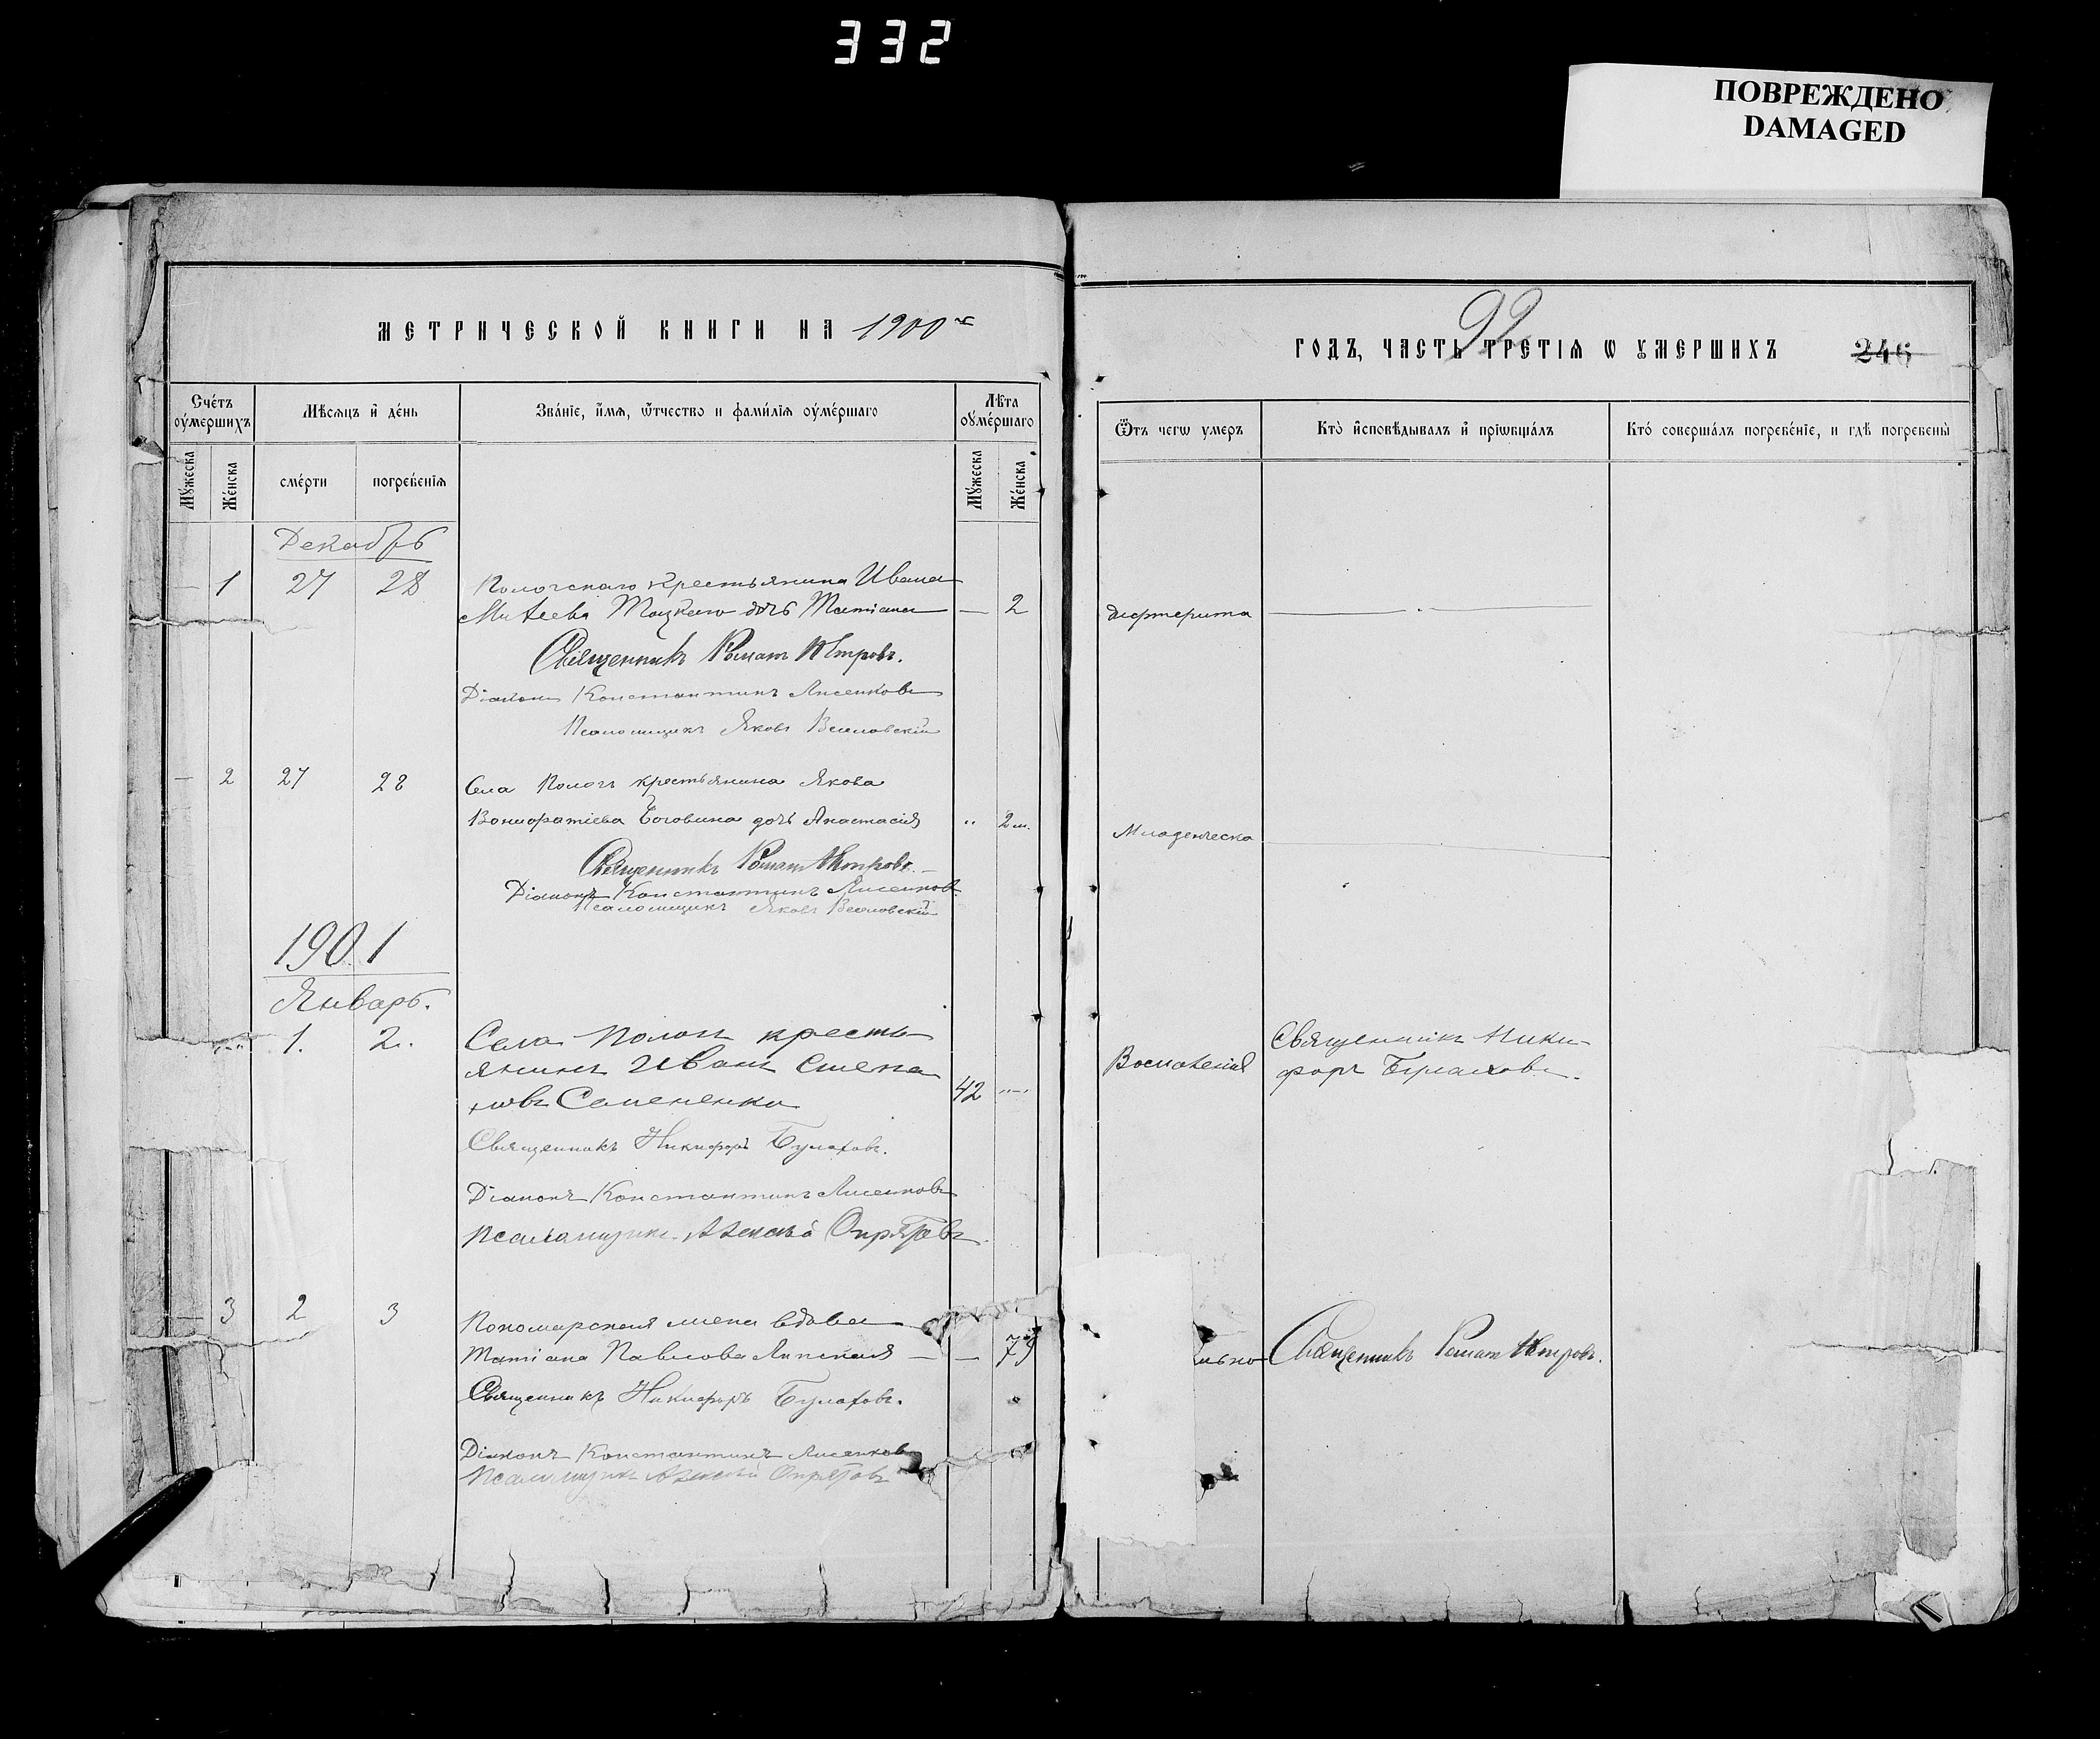 332
ПОВРЕЖДЕНО
DAMAGED
МЕТРИЧЕСКОЙ КНИГИ НА 1900й
Счетъ оумершихъ
Мѣсяцъ и день
Званіе, имя, ѿчество и фамилія оумершаго
Лѣта оумершаго
Мужеска
Женска
смерти
погребенія
Мужеска
Женска
Декабрь
— 1 27 28 Пологскаго крестьянина Ивана
Матѳева дочь Татіана — 2
Священникъ Романъ Петровъ.
Діаконъ Константинъ Лисенковъ
Псаломщикъ Яковъ Веселовскій
— 2 27 28 Села Пологъ крестьянина Якова
Боговина дочь Анастасія „ 2 м.
Священникъ Романъ Петровъ.
Діаконъ Константинъ Лисенковъ
Псаломщикъ Яковъ Веселовскій
1901
Январь.
1. 2. Села Пологъ кресть
янинъ Иванъ Стефа
новъ Семененко 42 „—„
Священникъ Никифоръ Булаховъ.
Діаконъ Константинъ Лисенковъ
Псаломщикъ Алексѣй Опрятовъ
— 3 2 3 Пономарская жена вдова
Татіана Павлова Липская — — 79
Священникъ Никифоръ Булаховъ.
Діаконъ Константинъ Лисенковъ
Псаломщикъ Алексѣй Опрятовъ
92
ГОДЪ, ЧАСТЬ ТРЕТІЯ Ѡ УМЕРШИХЪ 246
Ѿтъ чегѡ умеръ
Кто исповѣдывалъ и пріѡбщалъ
Кто совершалъ погребеніе, и гдѣ погребены
дифтерита
Младенческа
Воспаленія
Священникъ Ники
форъ Булаховъ.
льно Священникъ Романъ Петровъ.